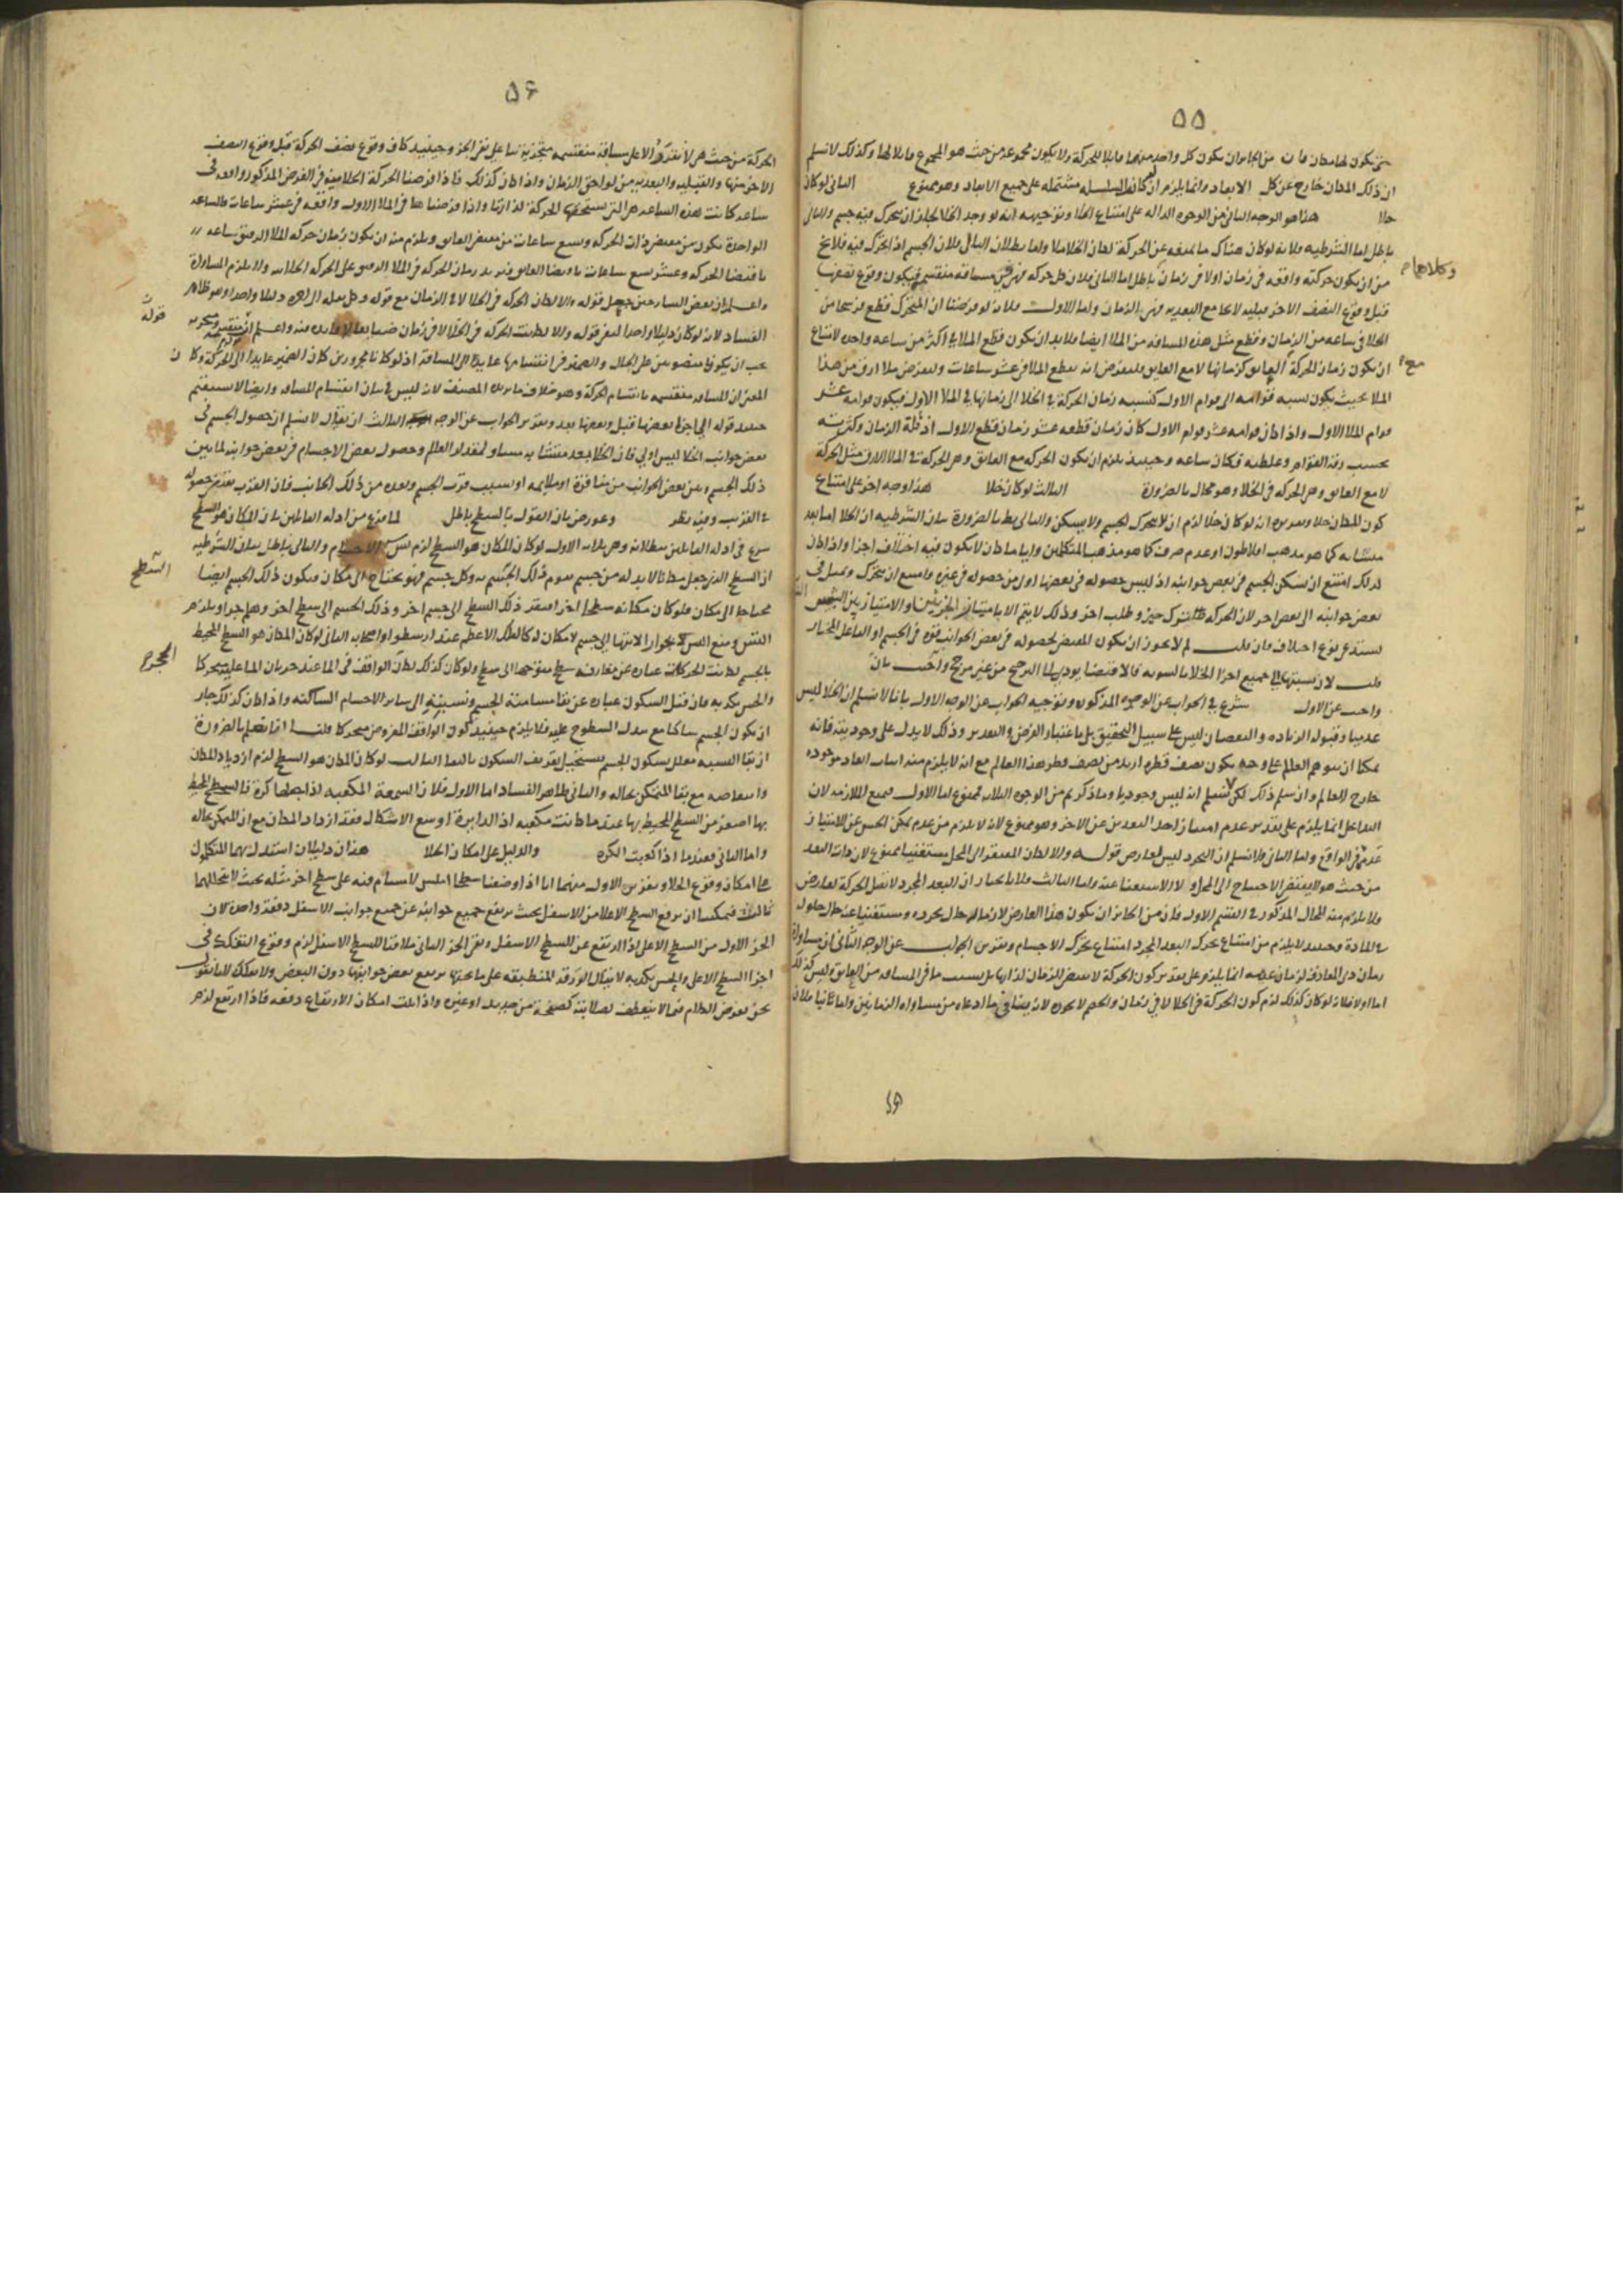 ٥٥
حتى يكون لها مكان فان من الجايز ان يكون كل واحد منها قابلا للحركة ولا يكون مجموعه من حيث هو المجموع قابلا لها وكذلك لا نسلم
ان ذلك المكان خارج عن كل الابعاد وانما يلزم ان لو كانت السلسله مشتمله على جميع الابعاد وهو ممنوع الثاني لو كان
خلا هذا هو الوجه الثاني من الوجوه الداله على امتناع الخلا وتوجيهه انه لو وجد الخلا لجاز ان يتحرك فيه جسم والتالي
باطل اما الشرطيه فلانه لو كان هناك ما يمنعه عن الحركة لكان الخلا ملا واما بطلان التالي فلان الجسم اذا تحرك فيه فلا يخ
وكلاهما م
من ان يكون حركته واقعه في زمان او لا في زمان باطل اما الثاني فلان كل حركه فهي في مسافه منقسمه فيكون وقوع نصفها
قبل وقوع النصف الاخر قبليه لا تجامع البعديه وهي الزمان واما الاول فلانه لو فرضنا ان المتحرك قطع فرسخا من
الخلا في ساعه من الزمان وقطع مثل هذه المسافه من الملا ايضا فلا بد ان يكون قطع الملا في اكثر من ساعه واحده لامتناع
ان يكون زمان الحركة مع العايق كزمانها لا مع العايق فلنفرض انه يقطع الملا في عشر ساعات ولنفرض ملا ارق من هذا
مع
الملا بحيث يكون نسبه قوامه الى قوام الاول كنسبه زمان الحركة في الخلا الى زمانها في الملا الاول فيكون قوامه عشر
قوام الملا الاول واذا كان قوامه عشر قوام الاول كان زمان قطعه عشر زمان قطع الاول اذ قلة الزمان وكثرته
بحسب رقة القوام وغلظه فكان ساعه وحينئذ يلزم ان يكون الحركه مع العايق وهي الحركه في الملا الارق مثل الحركة
لا مع العايق وهي الحركه في الخلا وهو محال بالضرورة الثالث لو كان خلا هذا وجه اخر على امتناع
كون المكان خلا وتقريره انه لو كان خلا لزم ان لا يتحرك الجسم ولا يسكن والتالي بط بالضرورة بيان الشرطيه ان الخلا اما بعد
متشابه كما هو مذهب افلاطون او عدم صرف كما هو مذهب المتكلمين وايا ما كان لا يكون فيه اختلاف اجزا واذا كان
كذلك امتنع ان يسكن الجسم في بعض جوانبه اذ ليس حصوله في بعضها اولى من حصوله في غيره وامتنع ان يتحرك ويميل في
بعض جوانبه الى بعض اخر لان الحركه ترك حيز وطلب اخر وذلك لا يتم الا بامتياز الحيزين والامتياز بين
يستدعي نوع اختلاف فان قلت لم لا يجوز ان يكون المقتضي لحصوله في بعض الجوانب قوه في الجسم او الفاعل المختار
قلت لان نسبتها الى جميع اجزا الخلا بالسويه فالاقتضا يودي الى الترجيح من غير مرجح واجيب بان
واجيب عن الاول شرع في الجواب عن الوجوه المذكوره وتوجيه الجواب عن الوجه الاول بانا لا نسلم ان الخلا ليس
عدميا وقبوله الزياده والنقصان ليس على سبيل التحقيق بل باعتبار الفرض والتقدير وذلك لا يدل على وجوديته فانه
يمكنا ان نتوهم العالم على وجه يكون نصف قطره ازيد من نصف قطر هذا العالم مع انه لا يلزم منه اثبات ابعاد موجوده
خارج العالم وان سلم ذلك لكن لا نسلم انه ليس وجوديا وما ذكرتم من الوجوه الثلاثه ممنوع اما الاول فمنع الملازمه لان
التداخل انما يلزم على تقدير عدم امتياز احد البعدين عن الاخر وهو ممنوع لانه لا يلزم من عدم تمكن الحس عن الامتياز
عدمه في الواقع واما الثاني فلا نسلم ان التجرد ليس لعارض قوله والا لكان المفتقر الى المحل مستغنيا ممنوع لان ذات البعد
من حيث هو لا يقتضي الاحتياج الى المحل ولا الاستغنا عنه واما الثالث فلانا نختار ان البعد المجرد لا يقبل الحركة لعارض
ولا يلزم منه المحال المذكور في القسم الاول فان من الجايز ان يكون هذا العارض لازما له حال تجرده ومستغنيا عنه حال حلوله
في المادة وحينئذ لا يلزم من امتناع تحرك البعد المجرد امتناع تحرك الاجسام وتقرير الجواب عن الوجه الثاني ان مساواة
زمان ذي المعاوق لزمان عديمه انما يلزم على تقدير كون الحركة لا تقتضي الزمان لذاتها بل بسبب ما في المسافه من العايق وليس كذلك
اما اولا فلانه لو كان كذلك لزم كون الحركة في الخلا لا في زمان والحكم لا يجوز لانه ينافي ما ادعاه من مساواة الزمانين واما ثانيا فلان
٥٦
الحركة من حيث هي لا تتقرر الا على مسافة منقسمه متجزية بنا على نفي الجز وحينئذ كان وقوع نصف الحركة قبل وقوع النصف
الاخر منها والقبليه والبعديه من لواحق الزمان واذا كان كذلك فاذا فرضنا الحركة الخلائيه في الفرض المذكور واقعه في
ساعه كانت هذه الساعه هي التي تستحقها الحركة لذاتها واذا فرضناها في الملا الاول واقعه في عشر ساعات فالساعه
الواحدة يكون من مقتضى ذات الحركه وتسع ساعات من مقتضى العايق ويلزم منه ان يكون زمان حركه الملا الارق ساعه
باقتضا الحركه وعشر تسع ساعات باقتضا العايق فيزيد زمان الحركه في الملا الارق على الحركه الخلائيه ولا يلزم المساواة
واعلم ان بعض الشارحين جعل قوله والا لكان الحركه في الخلا لا في الزمان مع قوله دليلا واحدا وهو ظاهر
قوله
الفساد لانه لو كان دليلا واحدا لبقي قوله والا لكانت الحركه في الخلا لا في زمان ضايعا لا فايده منه واعلم ان
يجب ان يكونا منصوبين على الحال والضمير في انقسامها عايد الى المسافة اذ لو كانا مجرورين كان الضمير عايدا الى الحركة وكان
المعنى ان المسافه منقسمه بانقسام الحركة وهو خلاف ما يريده المصنف لانه ليس في بيان انقسام المسافه وايضا لا يستقيم
حينئذ قوله الى اجزا بعضها قبل وبعضها بعد وتقرير الجواب عن الوجه الثالث ان يقال لا نسلم ان حصول الجسم في
بعض جوانب الخلا ليس اولى فان الخلا بعد متشابه مساو لمقدار العالم وحصول بعض الاجسام في بعض جوانبه لما بين
ذلك الجسم وبين بعض الجوانب من منافرة او ملايمه او بسبب قرب الجسم وبعده من ذلك الجانب فان القرب يقتضي حصوله
في القريب وفيه نظر وعورض بان القول بالسطح باطل لما فرغ من ادله القايلين بان المكان هو السطح
شرع في ادله القايلين ببطلانه وهي ثلاثه الاول لو كان المكان هو السطح لزم تسلسل الاجسام والتالي باطل بيان الشرطيه
السطح
ان السطح الذي جعل مكانا لا بد له من جسم يقوم ذلك الجسم به وكل جسم فهو يحتاج الى مكان فيكون ذلك الجسم ايضا
محتاجا الى مكان فلو كان مكانه سطحا اخر افتقر ذلك السطح الى جسم اخر وذلك الجسم الى سطح اخر وهلم جرا ويلزم
التس ومنع التس بجواز الانتها الى جسم لا مكان له كالفلك الاعظم عند ارسطو واصحابه الثاني لو كان المكان هو السطح المحيط
المجرح
بالجسم لكانت الحركات عباره عن مفارقه سطح متوجها الى سطح ولو كان كذلك لكان الواقف في الما عند جريان الما عليه متحركا
والحس يكذبه فان قيل السكون عباره عن بقا مسامتة الجسم ونسبته الى ساير الاجسام الساكنه واذا كان كذلك جاز
ان يكون الجسم ساكنا مع تبدل السطوح عليه فلا يلزم حينئذ كون الواقف المفروض متحركا قلنا انا نعلم بالضرورة
ان بقا النسبه معلل بسكون الجسم فيستحيل تعريف السكون بالبقا الثالث لو كان المكان هو السطح لزم ازدياد المكان
وانتقاصه مع بقا المتمكن بحاله والثاني ظاهر الفساد اما الاول فلان الشمعة المكعبه اذا جعلناها كرة فالسطح المحيط
بها اصغر من السطح المحيط بها عندما كانت مكعبه اذ الدايرة اوسع الاشكال فقد ازداد المكان مع ان المتمكن بحاله
واما الثاني فعندما اذا كعبت الكره والدليل على امكان الخلا هذان دليلان استدل بهما المتكلمون
على امكان وقوع الخلا وتقرير الاول منهما انا اذا وضعنا سطحا املس لا مسام فيه على سطح اخر مثله بحيث لا يتخللهما
ثالث فيمكننا ان نرفع السطح الاعلى من الاسفل بحيث يرتفع جميع جوانبه عن جميع جوانب الاسفل دفعة واحده لان
الجز الاول من السطح الاعلى اذا ارتفع عن السطح الاسفل وبقي الجز الثاني ملاقيا للسطح الاسفل لزم وقوع التفكك في
اجزا السطح الاعلى والحس يكذبه لا يقال الورقه المنطبقه على ما تحتها يرتفع بعض جوانبها دون البعض ولا تفكك لانا نقول
نحن نفرض الكلام فيما لا ينعطف لصلابته كصفحه من حديد او غيره واذا ثبت امكان الارتفاع دفعه فاذا ارتفع لزم